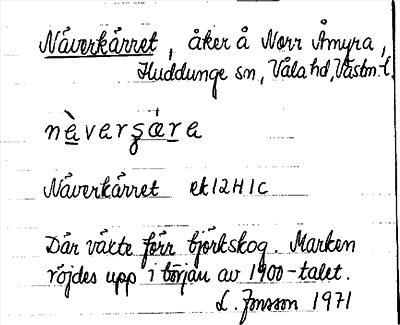 Näverkärret, åker å Norr Åmyra,
Huddunge sn, Våla hd, Västm. l.
nèvarṣæ̣ra
Näverkärret ek 12H1c
Där växte förr björkskog. Marken
röjdes upp i början av 1900-talet.
L. Jonsson 1971